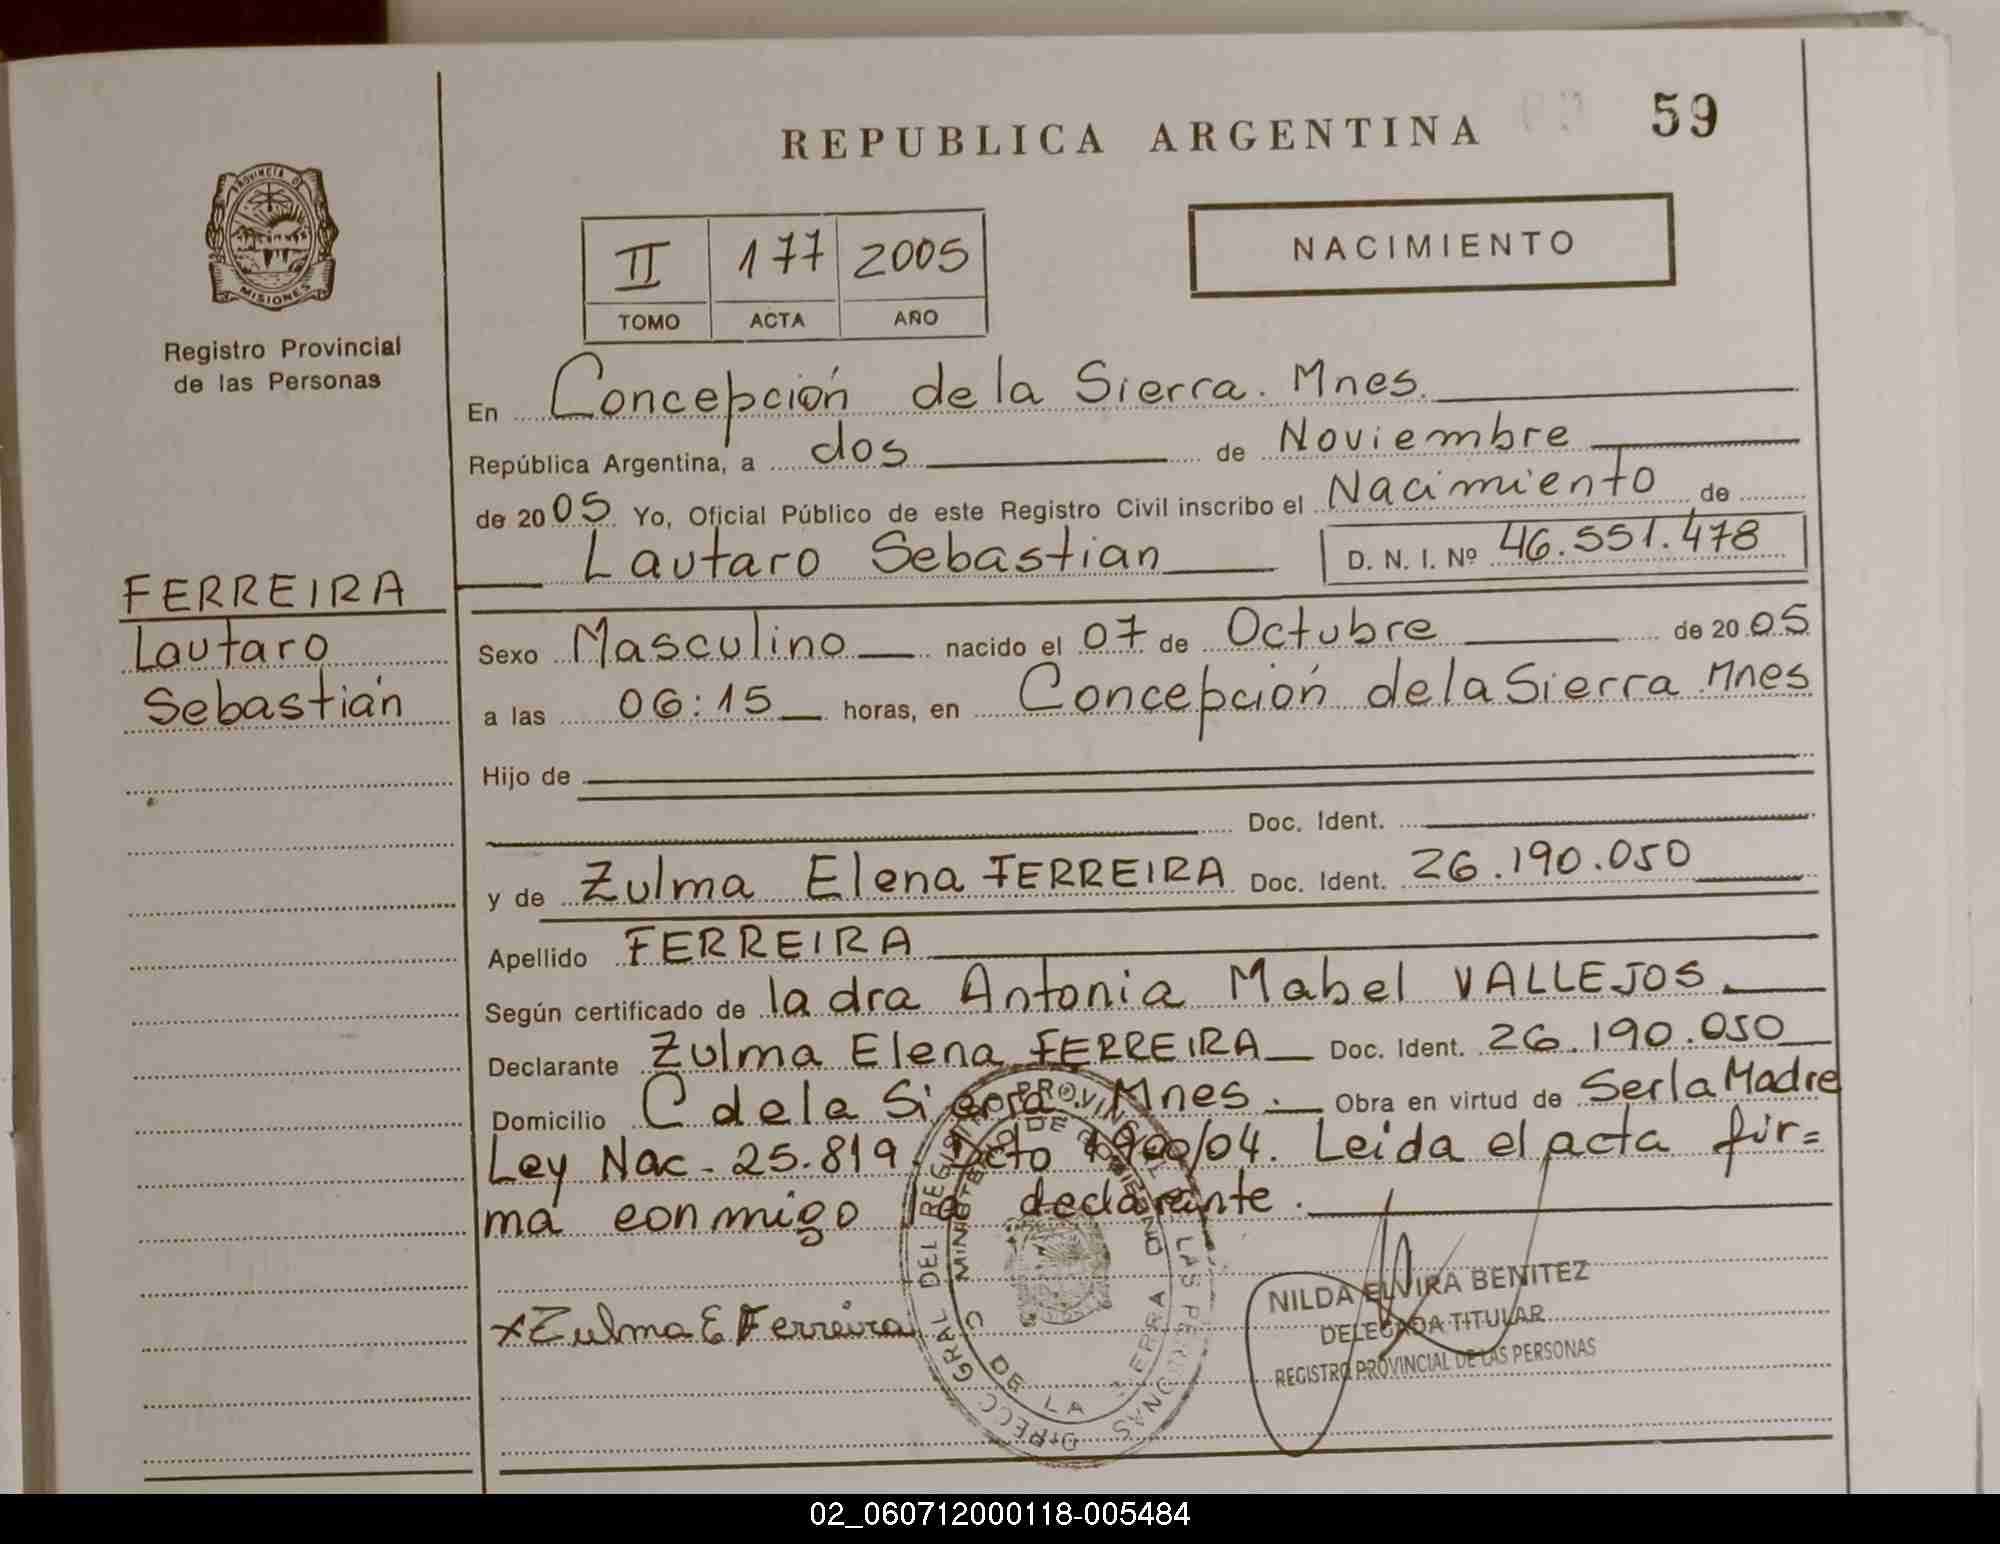 REPUBLICA ARGENTINA
59
PROVINCIA DE
MISIONES
Registro Provincial
de las Personas
II 177 2005
TOMO ACTA AÑO
NACIMIENTO
En Concepción de la Sierra. Mnes.
República Argentina, a dos de Noviembre
de 2005 Yo, Oficial Público de este Registro Civil inscribo el Nacimiento de
Lautaro Sebastian D. N. I. Nº 46.551.478
FERREIRA
Lautaro
Sebastián
Sexo Masculino nacido el 07 de Octubre de 2005
a las 06:15 horas, en Concepción de la Sierra Mnes
Hijo de
Doc. Ident.
y de Zulma Elena FERREIRA Doc. Ident. 26.190.050
Apellido FERREIRA
Según certificado de la dra Antonia Mabel VALLEJOS
Declarante Zulma Elena FERREIRA Doc. Ident. 26.190.050
Domicilio C de la Sierra Mnes. Obra en virtud de Ser la Madre
Ley Nac. 25.819. Dcto 1900/04. Leida el acta fir=
ma conmigo la declarante.
x Zulma E Ferreira
NILDA ELVIRA BENITEZ
DELEGADA TITULAR
REGISTRO PROVINCIAL DE LAS PERSONAS
02_060712000118-005484